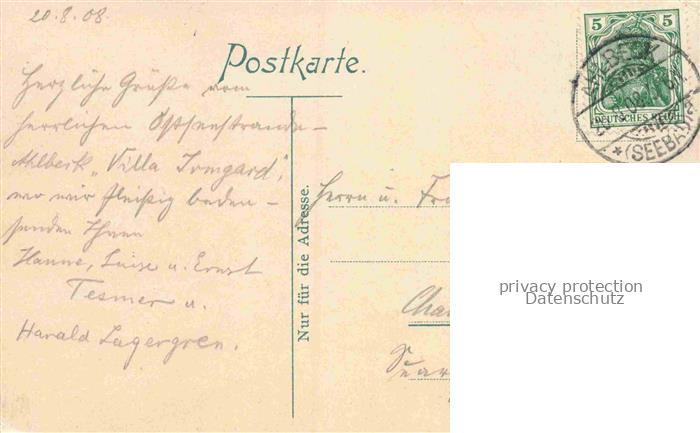 20.8.08
Postkarte.
Herzliche Grüße vom
herrlichen Ostseestrande –
Ahlbeck „Villa Irmgard",
wo wir fleißig baden –
senden Ihnen
Hanne, Luise u. Ernst
Tesmer u.
Harald Lagergren.
Nur für die Adresse.
Herrn u.
5 5
DEUTSCHES REICH
AHLBECK
* (SEEBAD)
privacy protection
Datenschutz